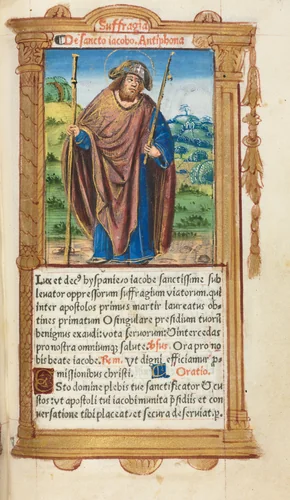 Suffragia
De sancto iacobo. Antiphona
Lux et decꝰ hyspanie o iacobe sanctissime sub
leuator oppressorum suffragium viatorum. qui
inter apostolos primus martir laureatus ob
tines primatum O singulare presidium tuorū
benignus exaudi vota seruorum: & intercedas
pro nostra omniumqꝫ salute. v̄sus. Ora pro no
bis beate iacobe. Rem. Vt digni efficiamur ꝓ
missionibus christi. Oratio.
Esto domine plebis tue sanctificator & cu
stos vt apostoli tui iacobi munita p̄sidiis et con
uersatione tibi placeat, et secura deseruiat. p.